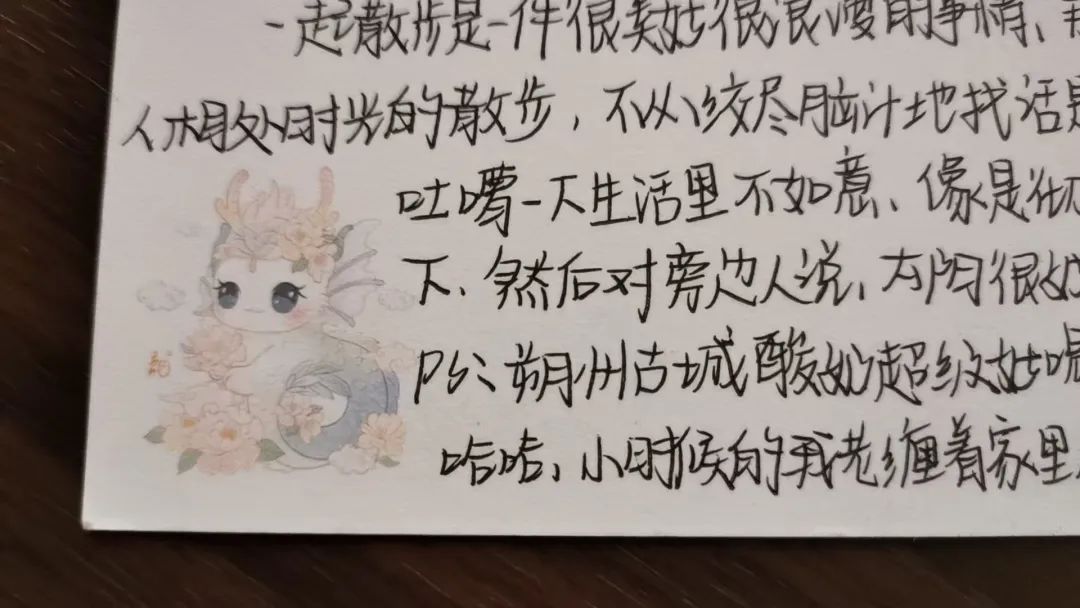 一起散步是一件很美好很浪漫的事情、
人相处时光的散步，不必绞尽脑汁地找话
吐嘈一下生活里不如意、像是
下、然后对旁边人说，太阳很
PS：朔州古城酸奶超级好喝
哈哈、小时候的我老缠着家里
龍